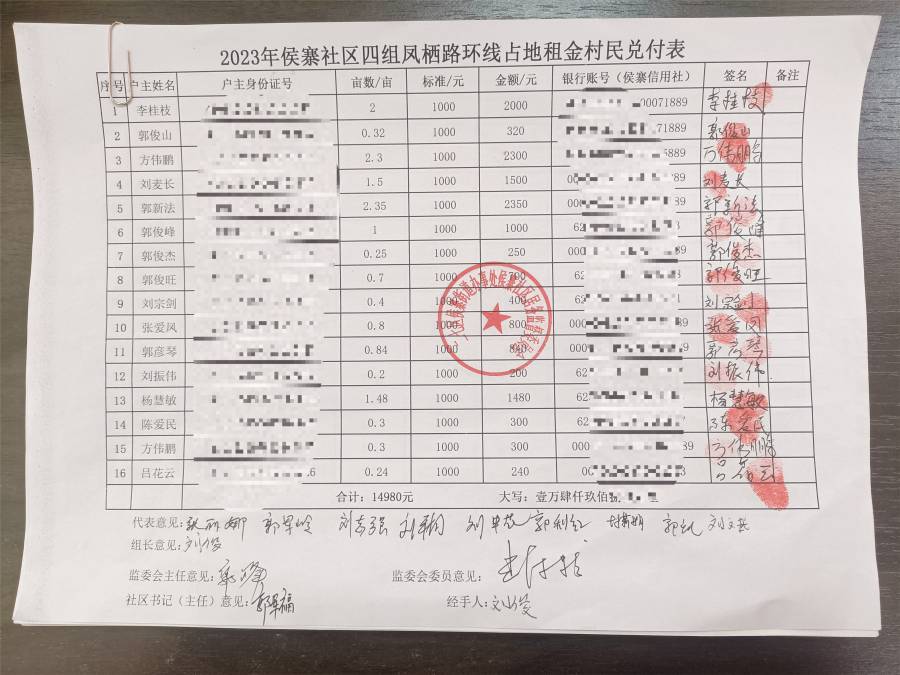 2023年侯寨社区四组凤栖路环线占地租金村民兑付表
序号 户主姓名 户主身份证号 亩数/亩 标准/元 金额/元 银行账号（侯寨信用社） 签名 备注
1 李桂枝 2 1000 2000 00071889 李桂枝
2 郭俊山 0.32 1000 320 71889 郭俊山
3 方伟鹏 2.3 1000 2300 889 方伟鹏
4 刘麦长 1.5 1000 1500 000 刘麦长
5 郭新法 2.35 1000 2350 000 9 郭新法
6 郭俊峰 1 1000 1000 62 郭俊峰
7 郭俊杰 0.25 1000 250 000 9 郭俊杰
8 郭俊旺 0.7 1000 700 62 郭俊旺
9 刘宗剑 0.4 1000 400 62 刘宗剑
10 张爱凤 0.8 1000 800 000 张爱凤
11 郭彦琴 0.84 1000 840 000 郭彦琴
12 刘振伟 0.2 1000 200 62 刘振伟
13 杨慧敏 1.48 1000 1480 62 杨慧敏
14 陈爱民 0.3 1000 300 62 陈爱民
15 方伟鹏 0.3 1000 300 000 89 方伟鹏
16 吕花云 6 0.24 1000 240 00 吕花云
合计：14980元 大写：壹万肆仟玖佰
代表意见：
组长意见：刘俊
监委会主任意见： 监委会委员意见：
社区书记（主任）意见： 经手人：刘俊